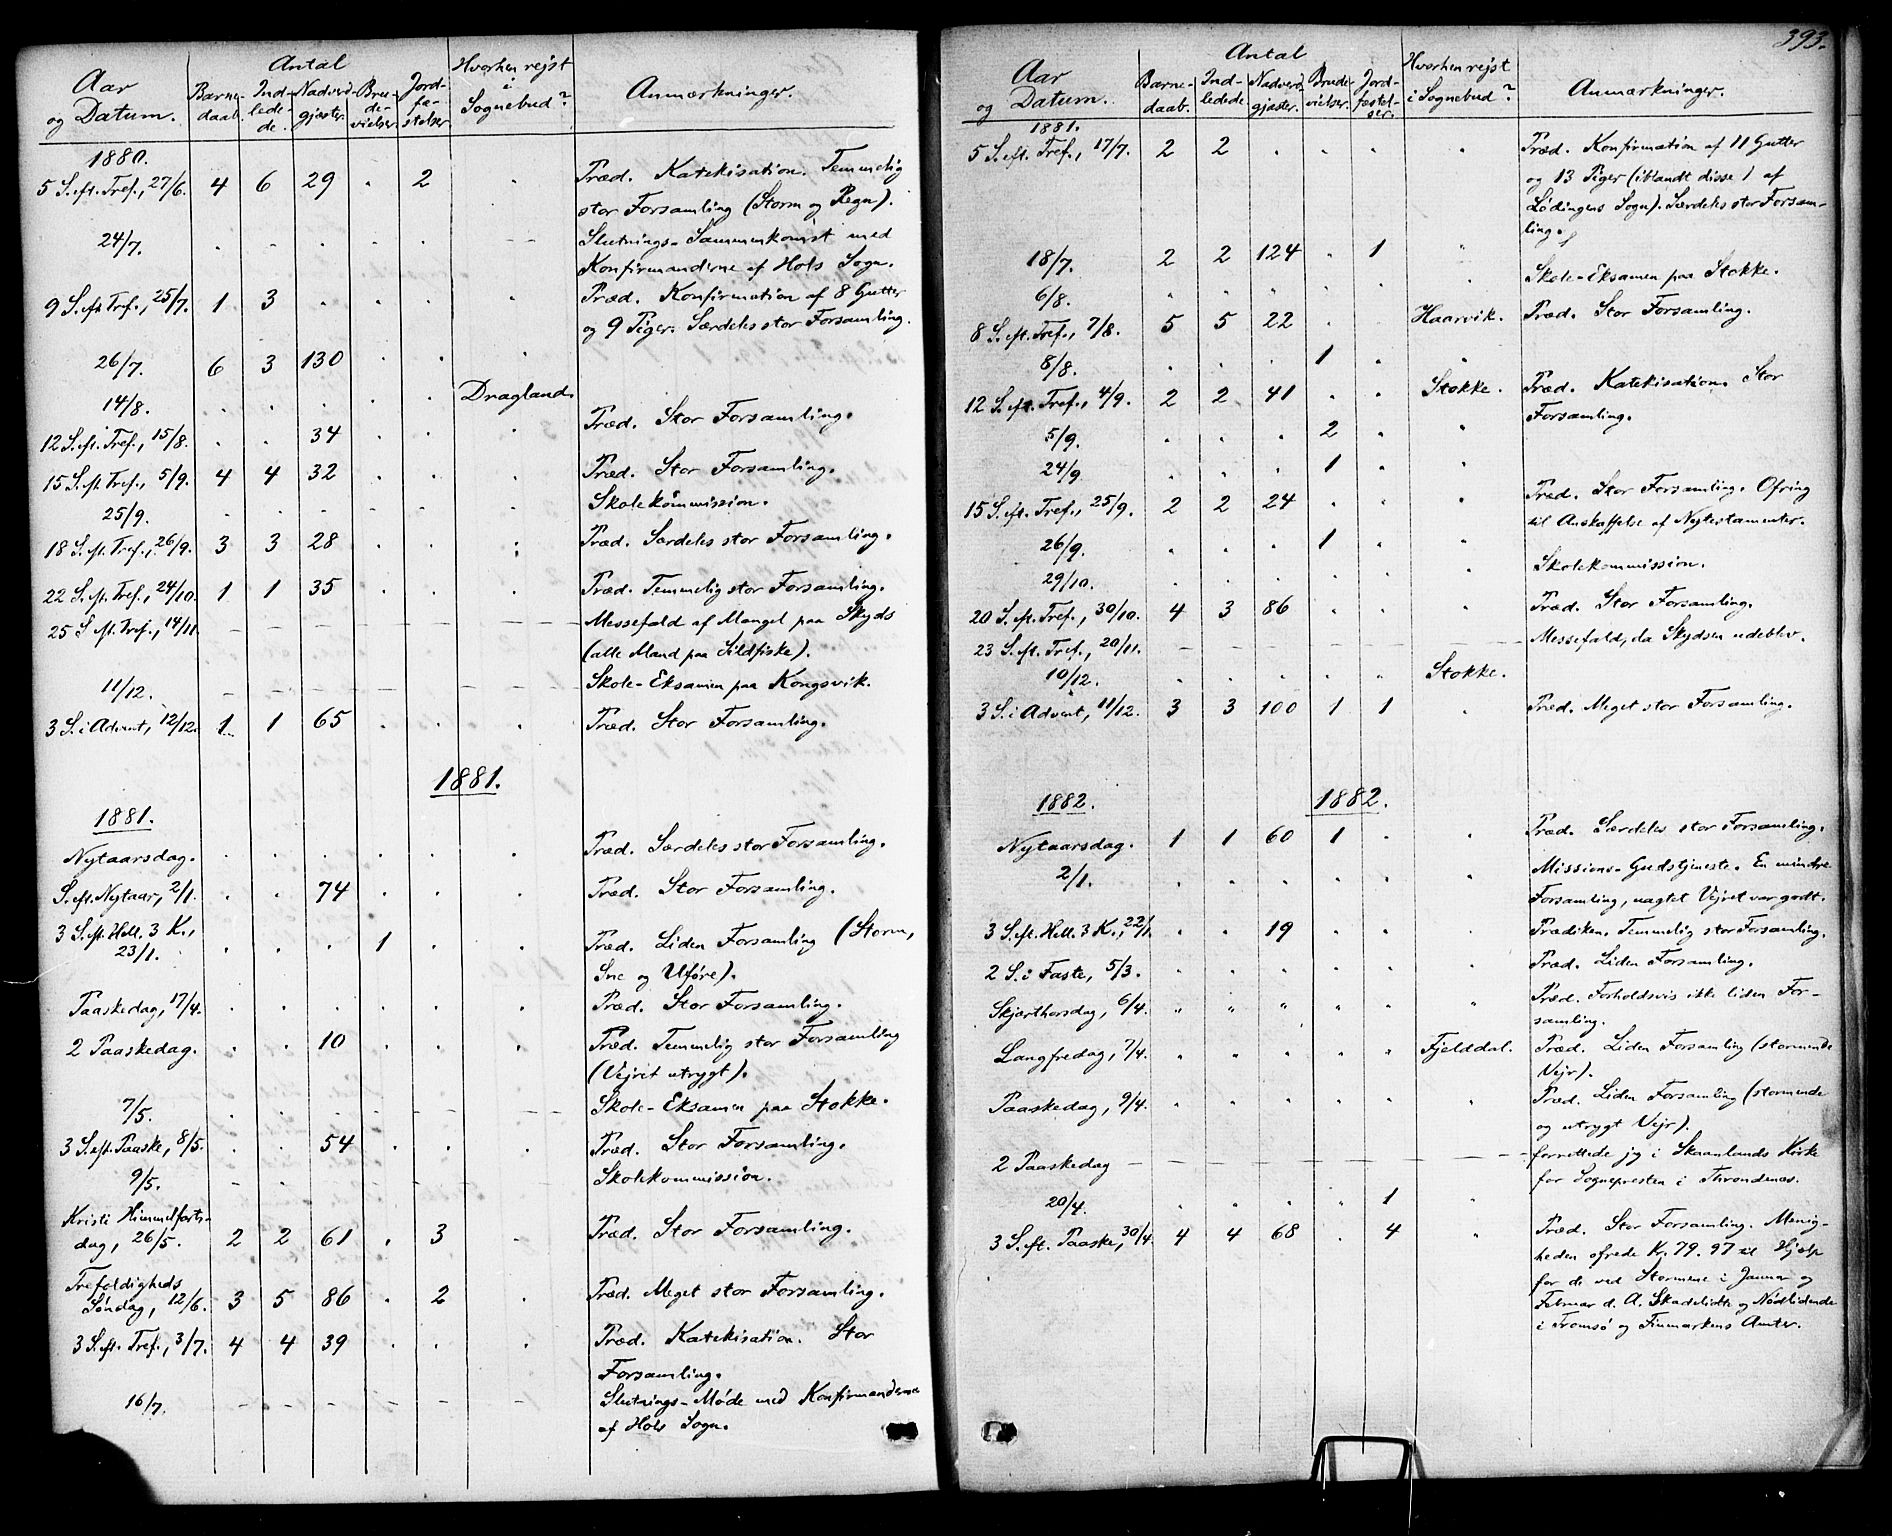 Aar og Datum. | Antal | Barne-daab. | Ind-lede-de. | Nadverd-gjæster. | Bru-de-vielser. | Jord-fæ-stelser. | Hvorhen rejst i Sognebud? | Anmærkninger.
1880.
5 S. eft. Tref., 27/6. 4 6 29 . 2 . Præd. Katekisation. Temmelig
stor Forsamling (Storm og Regn).
24/7. . . . . . -- Slutnings-Sammenkomst med
Konfirmanderne af Hols Sogn.
9 S. eft. Tref., 25/7. 1 3 . . . . Præd. Konfirmation af 8 Gutter
og 9 Piger. Særdeles stor Forsamling.
26/7. 6 3 130 . . .
14/8. . . . . . Dragland.
12 S. eft. Tref., 15/8. . . 34 . . . Præd. Stor Forsamling.
15 S. eft. Tref., 5/9. 4 4 32 . . . Præd. Stor Forsamling.
25/9. . . . . . . Skolekommission.
18 S. eft. Tref., 26/9. 3 3 28 . . . Præd. Særdeles stor Forsamling.
22 S. eft. Tref., 24/10. 1 1 35 . . . Præd. Temmelig stor Forsamling.
25 S. eft. Tref., 14/11. - - - - - - Messefald af Mangel paa Skyds
(alle Mand paa Sildfiske).
11/12. - - - - - - Skole-Eksamen paa Kongsvik.
3 S. i Advent, 12/12. 1 1 65 . . . Præd. Stor Forsamling.
1881.
1881.
Nytaarsdag. . . . . . . Præd. Særdeles stor Forsamling.
S. eft. Nytaar, 2/1. . . 74 . . . Præd. Stor Forsamling.
3 S. eft. Hell. 3 K.,
23/1. . . . 1 . . Præd. Liden Forsamling (Storm,
Sne og Uføre).
Paaskedag, 17/4. . . . . . . Præd. Stor Forsamling.
2 Paaskedag. . . 10 . . . Præd. Temmelig stor Forsamling
(Vejret utrygt).
7/5. . . . - - - Skole-Eksamen paa Stokke.
3 S. eft. Paaske, 8/5. . . 54 . . . Præd. Stor Forsamling.
9/5. - - . - - - Skolekommission.
Kristi Himmelfarts-
dag, 26/5. 2 2 61 . 3 . Præd. Stor Forsamling.
Trefoldigheds
Søndag, 12/6. 3 5 86 . 2 . Præd. Meget stor Forsamling.
3 S. eft. Tref., 3/7. 4 4 39 . . . Præd. Katekisation. Stor
Forsamling.
16/7. - - - - - - Slutnings-Møde med Konfirmanderne
af Hols Sogn.
393.
Aar og Datum. | Antal | Barne-daab. | Ind-ledede. | Nadverd-gjæster. | Brude-vielser. | Jord-fæstel-ser. | Hvorhen rejst i Sognebud? | Anmærkninger.
1881.
5 S. eft. Tref., 17/7. 2 2 . . . . Præd. Konfirmation af 11 Gutter
og 13 Piger (iblandt disse 1 af
Lødingens Sogn). Særdeles stor Forsam-
ling.
18/7. 2 2 124 . 1 "
6/8. " " " . . . Skole-Eksamen paa Stokke.
8 S. eft. Tref., 7/8. 5 5 22 . . Haarvik. Præd. Stor Forsamling.
8/8. . . . 1 . "
12 S. eft. Tref., 4/9. 2 2 41 . . Stokke. Præd. Katekisation. Stor
Forsamling.
5/9. . . . 2 . "
24/9. . . . 1 . "
15 S. eft. Tref., 25/9. 2 2 24 . . . Præd. Stor Forsamling. Ofring
til Anskaffelse af Nytestamenter.
26/9. . . . 1 . "
29/10. . . . . . . Skolekommission.
20 S. eft. Tref., 30/10. 4 3 86 . . . Præd. Stor Forsamling.
23 S. eft. Tref., 20/11. - - - - - - Messefald, da Skydsen udeblev.
10/12. . . . . . Stokke.
3 S. i Advent, 11/12. 3 3 100 1 1 . Præd. Meget stor Forsamling.
1882. 1882.
Nytaarsdag. 1 1 60 1 . . Præd. Særdeles stor Forsamling.
2/1. . . . . . . Missions-Gudstjeneste. En mindre
Forsamling, uagtet Vejret var godt.
3 S. eft. Hell. 3 K., 22/1. . . 19 . . . Prædiken. Temmelig stor Forsamling.
2 S. i Faste, 5/3. " " " " " " Præd. Liden Forsamling.
Skjærthorsdag, 6/4. " " " " " " Præd. Forholdsvis ikke liden For-
samling.
Langfredag, 7/4. " " " " " Fjelddal. Præd. Liden Forsamling (stormende
Vejr).
Paaskedag, 9/4. " " " " " " Præd. Liden Forsamling (stormende
og utrygt Vejr).
2 Paaskedag - - - - - - forrettede jeg i Skaanlands Kirke
for Sognepresten i Throndenes.
20/4. " " " " 1 "
3 S. eft. Paaske, 30/4. 4 4 68 . 4 " Præd. Stor Forsamling. Menig-
heden ofrede Kr. 79.97 til Hjælp
for de ved Stormene i Januar og
Februar d. A. Skadelidte og Nødlidende
i Tromsø og Finmarkens Amter.